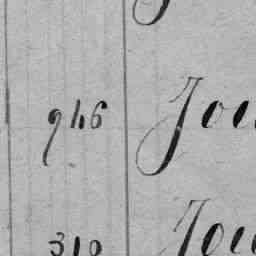 946 Jou
310 Jou